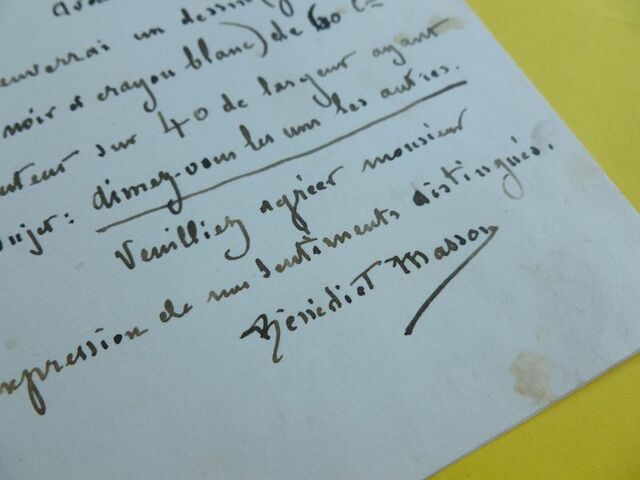 enverrai un dessin
noir et crayon blanc) de 60 c
uteur sur 40 de largeur ayant
sujet: aimez-vous les uns les autres.
Veuilliez agréer monsieur
expression de mes sentiments distingués.
Bénédict Masson